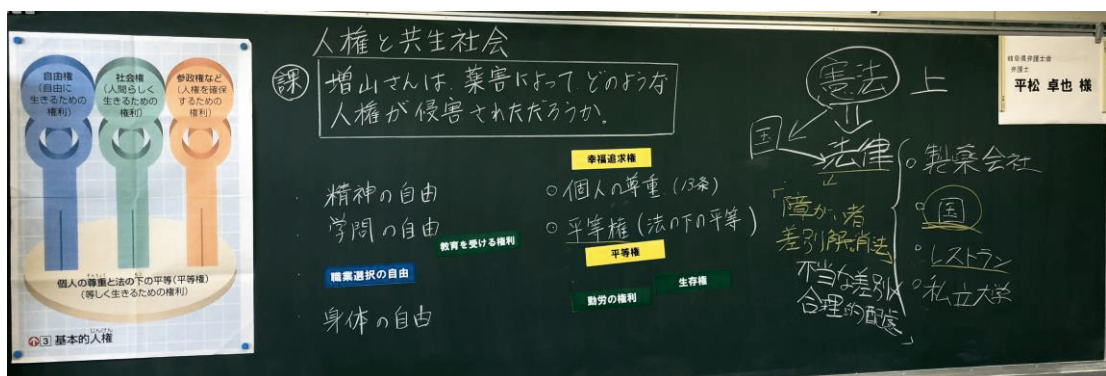 自由権
(自由に
生きるための
権利)
社会権
(人間らしく
生きるための
権利)
参政権など
(人権を確保
するための
権利)
個人の尊重と法の下の平等(平等権)
(等しく生きるための権利)
3 基本的人権
人権と共生社会
課
増山さんは、薬害によって、どのような
人権が侵害されただろうか。
精神の自由
学問の自由
教育を受ける権利
職業選択の自由
身体の自由
幸福追求権
○個人の尊重(13条)
○平等権(法の下の平等)
平等権
生存権
勤労の権利
憲法 上
国
法律
「障がい者
差別解消法」
不当な差別
合理的配慮
○製薬会社
○国
○レストラン
○私立大学
岐阜県弁護士会
弁護士
平松 卓也 様